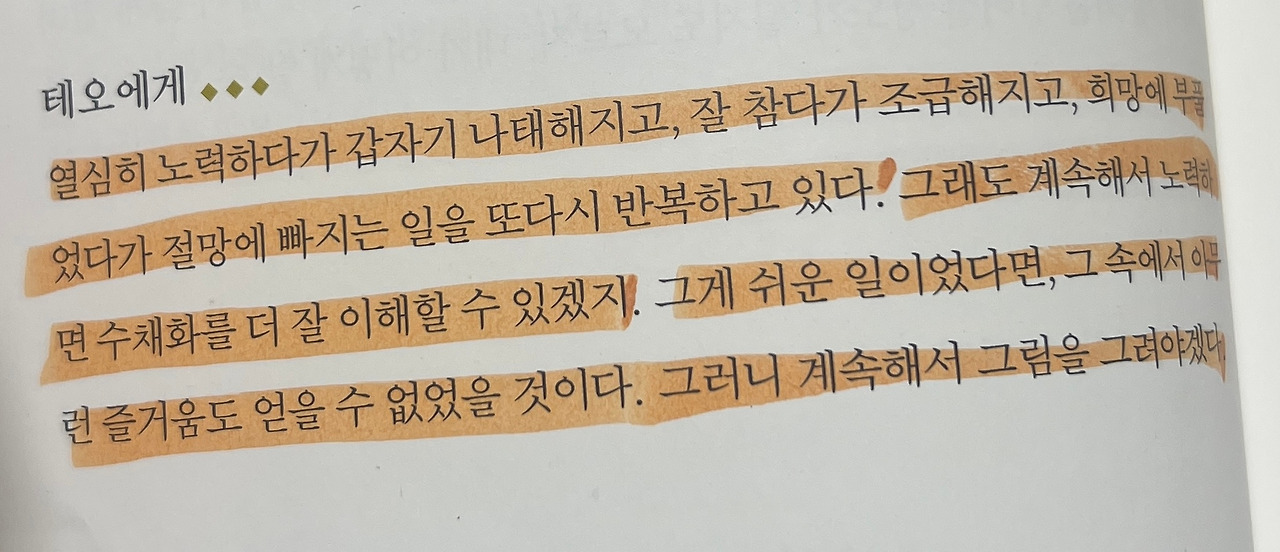 테오에게
열심히 노력하다가 갑자기 나태해지고, 잘 참다가 조급해지고, 희망에 부풀
었다가 절망에 빠지는 일을 또다시 반복하고 있다. 그래도 계속해서 노력하
면 수채화를 더 잘 이해할 수 있겠지. 그게 쉬운 일이었다면, 그 속에서 아무
런 즐거움도 얻을 수 없었을 것이다. 그러니 계속해서 그림을 그려야겠다.